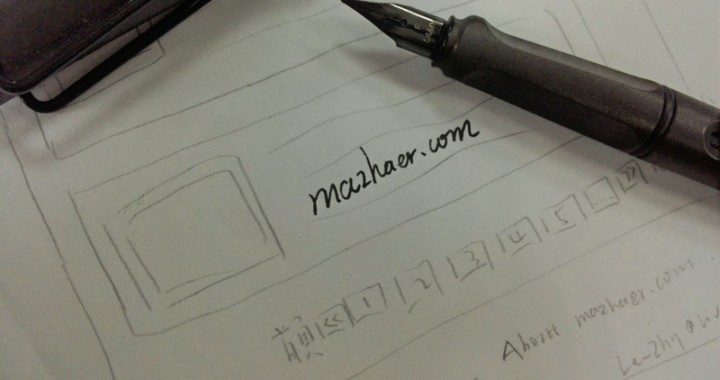 mazhaer.com
« 1 2 3 4 5 ... »
About mazhaer.com